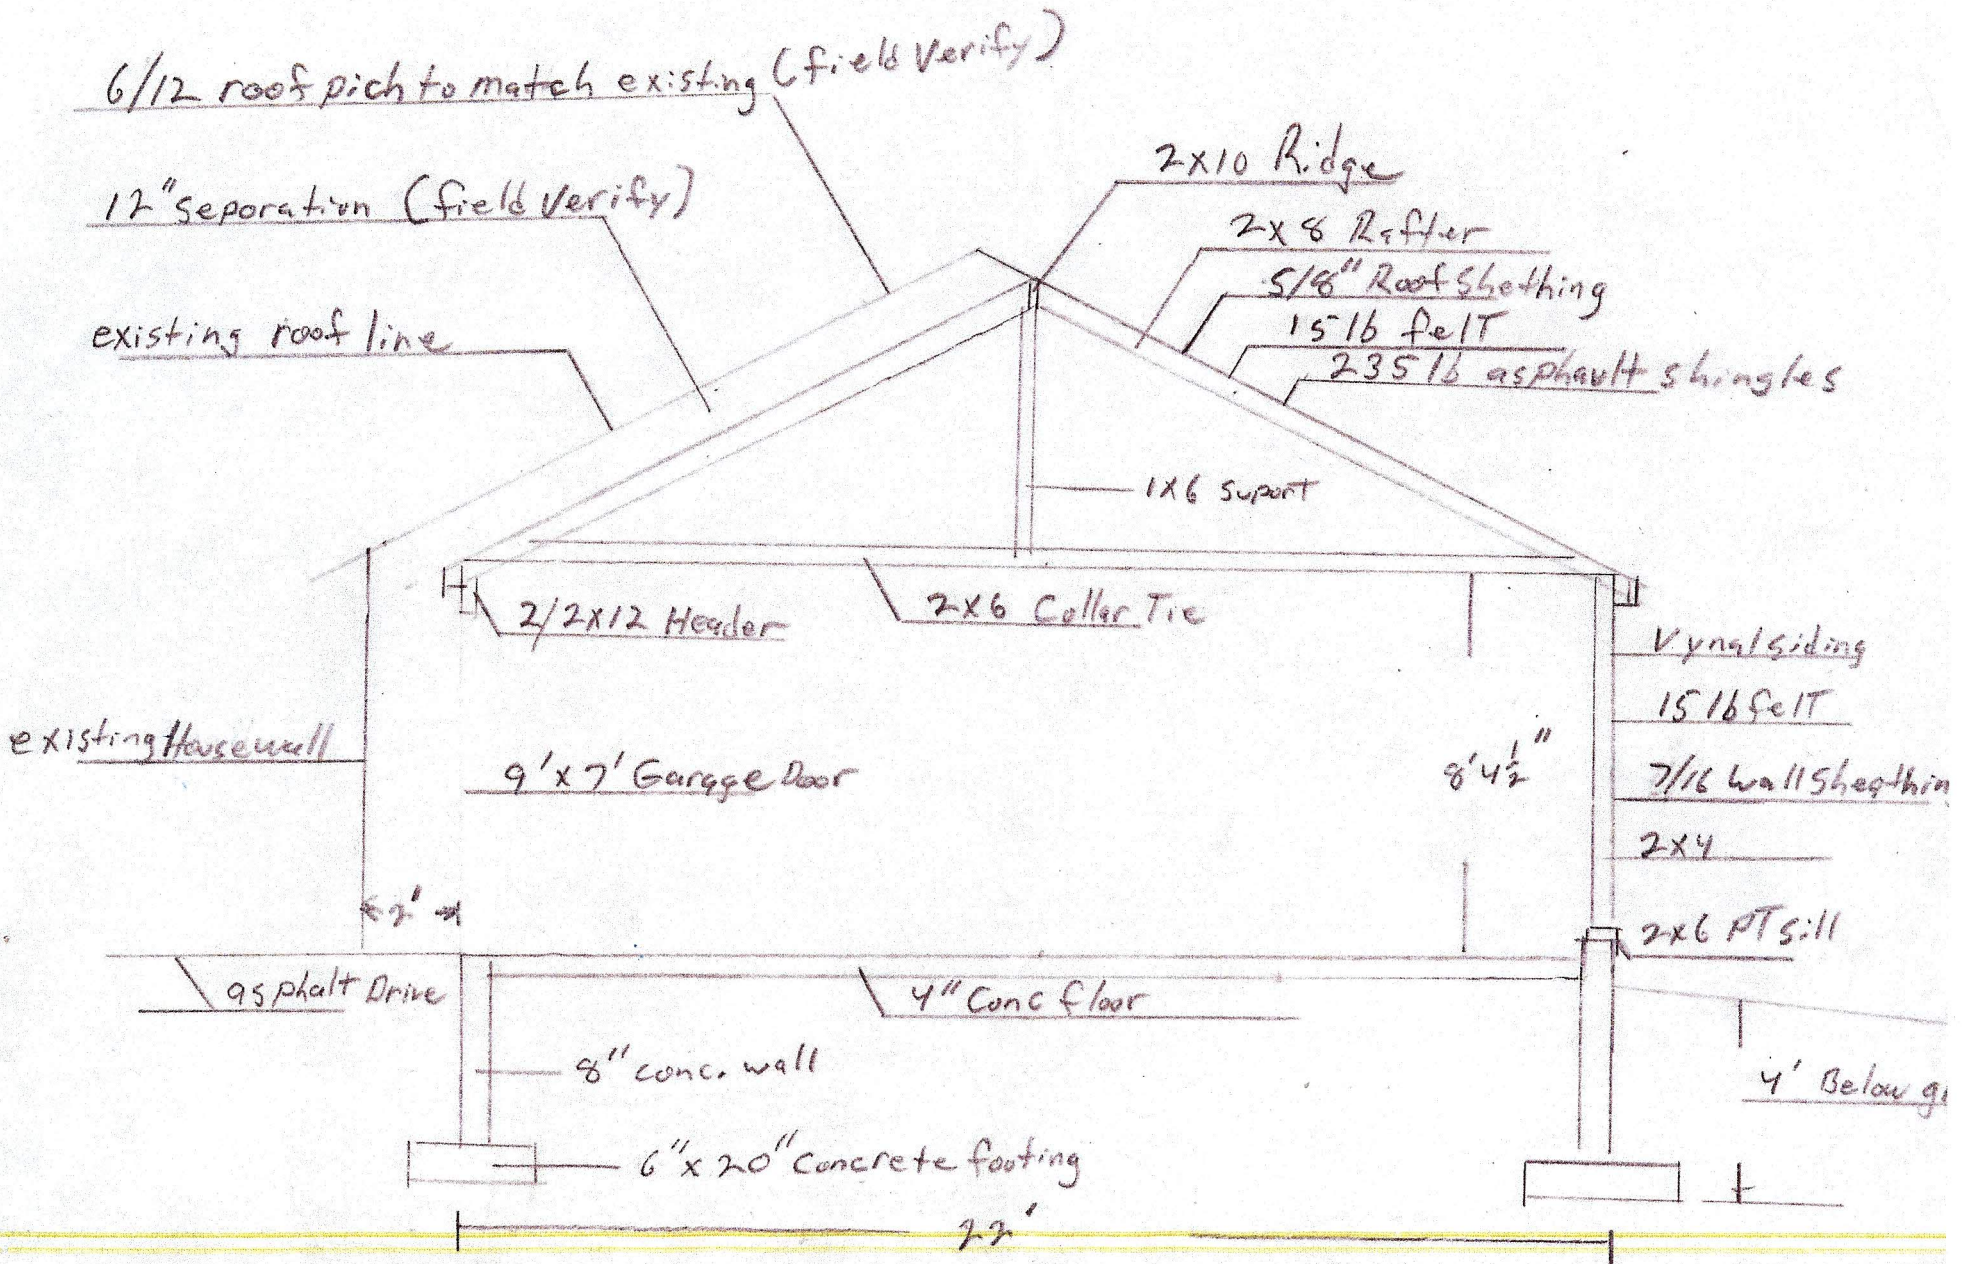 6/12 roof pich to match existing (field verify)
12" seporation (field verify)
existing roof line
2x10 Ridge
2x8 Rafter
5/8" Roof Shething
15 lb felT
235 lb asphault shingles
1x6 suport
2/2x12 Header
2x6 Collar Tie
Vynal siding
15 lb felT
existing House wall
9'x7' Garage Door
8'4½"
7/16 wall Sheathin
2x4
2'
2x6 PT Sill
asphalt Drive
4" Conc floor
8" conc. wall
4' Below
6"x20" Concrete footing
22'